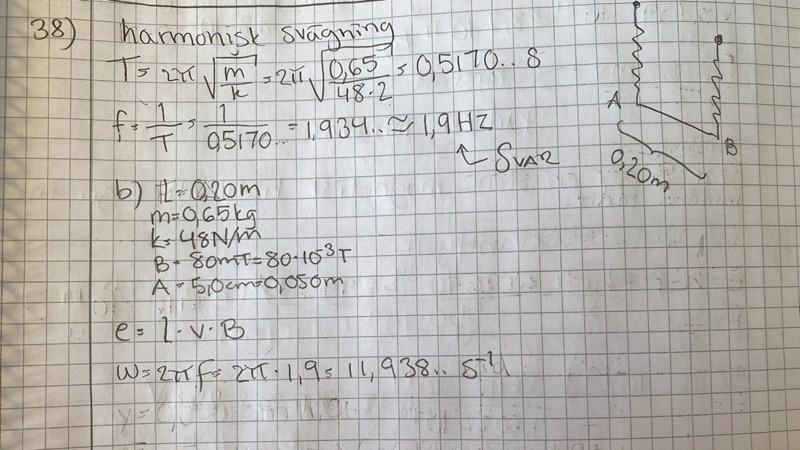 38) harmonisk svägning
T = 2π √(m/k) = 2π √(0,65/48·2) = 0,5170.. s
f = 1/T = 1/0,5170.. = 1,934.. ≈ 1,9 Hz
↖ Svar
A
B
0,20m
b) l = 0,20m
m = 0,65kg
k = 48N/m
B = 80mT = 80·10⁻³T
A = 5,0cm = 0,050m
e = l · v · B
ω = 2πf = 2π · 1,9 = 11,938.. s⁻¹
y =